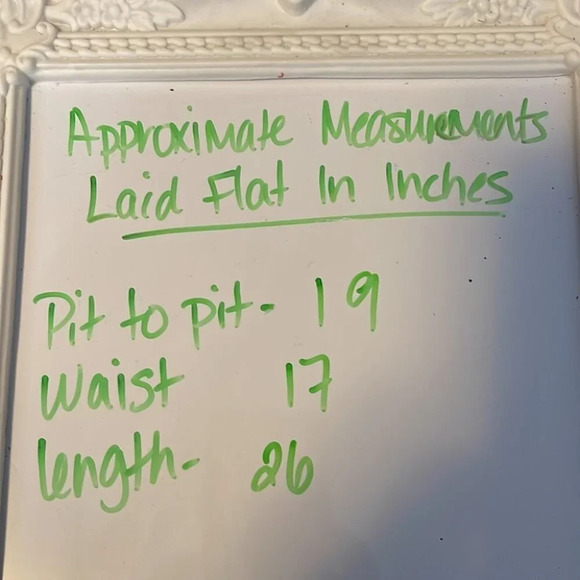 Approximate Measurements
Laid Flat In Inches
Pit to pit- 19
Waist 17
length- 26